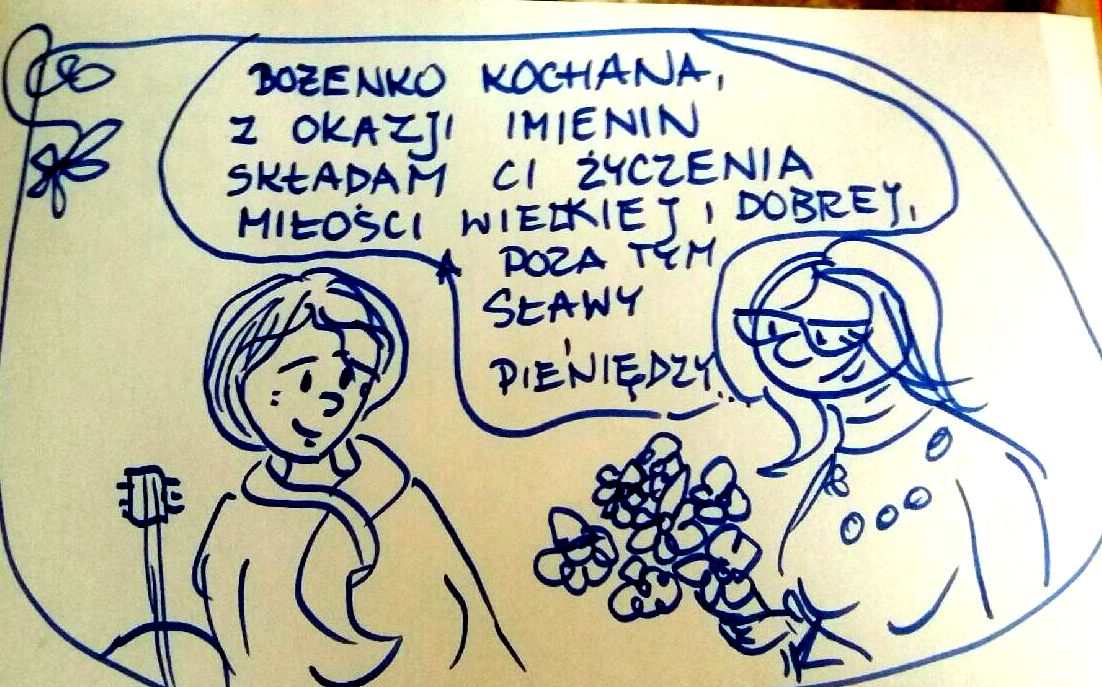 BOZENKO KOCHANA,
Z OKAZJI IMIENIN
SKŁADAM CI ŻYCZENIA
MIŁOŚCI WIELKIEJ I DOBREJ,
POZA TYM
SŁAWY
I
PIENIĘDZY...